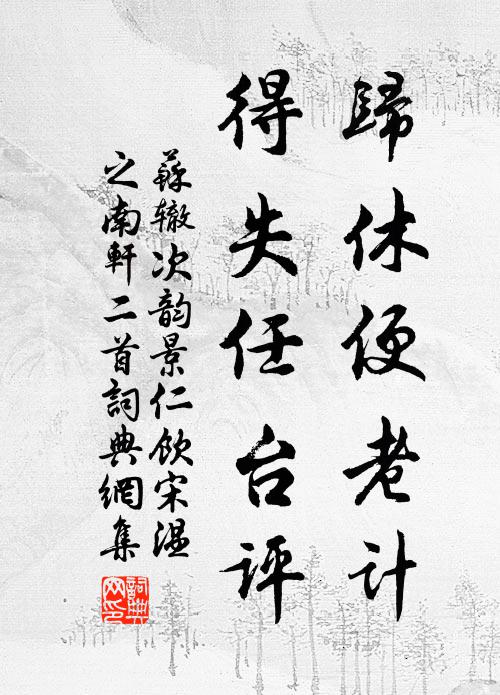 歸休便老計
得失任台評
蘇辙次韵景仁飲宋温
之南軒二首詞典網集
詞典网印